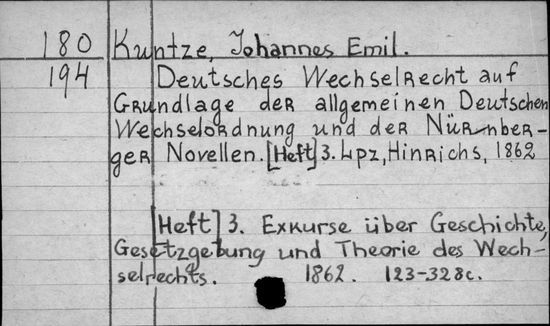 180 Kuntze, Johannes Emil.
194 Deutsches Wechselrecht auf
Grundlage der allgemeinen Deutschen
Wechselordnung und der Nürnber-
ger Novellen. [Heft] 3. Lpz, Hinrichs, 1862
[Heft] 3. Exkurse über Geschichte,
Gesetzgebung und Theorie des Wech-
selrechts. 1862. 123-328 с.